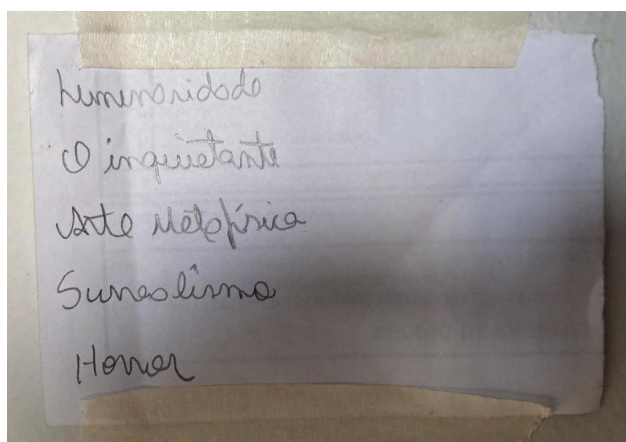 Luminaridade
O inquietante
Arte Metafísica
Surrealismo
Horror